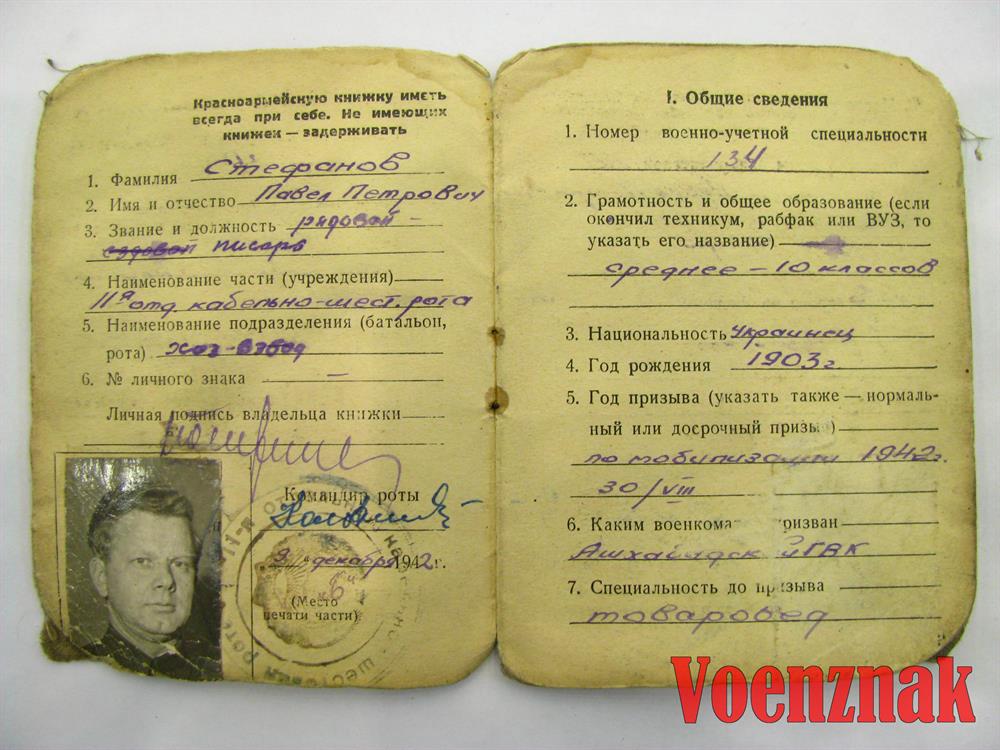 Красноармейскую книжку иметь
всегда при себе. Не имеющих
книжек — задерживать
1. Фамилия Стефанов
2. Имя и отчество Павел Петрович
3. Звание и должность рядовой –
писарь
4. Наименование части (учреждения)
11я отд. кабельно-шест. рота
5. Наименование подразделения (батальон,
рота) хоз-взвод
6. № личного знака —
Личная подпись владельца книжки
Командир роты
декабря 1942 г.
(Место
печати части)
I. Общие сведения
1. Номер военно-учетной специальности
134
2. Грамотность и общее образование (если
окончил техникум, рабфак или ВУЗ, то
указать его название)
среднее – 10 классов
3. Национальность украинец
4. Год рождения 1903 г.
5. Год призыва (указать также — нормаль-
ный или досрочный призыв)
по мобилизации 1942 г.
30/VIII
6. Каким военкома призван
Ашхабадск ГВК
7. Специальность до призыва
товаровед
Voenznak